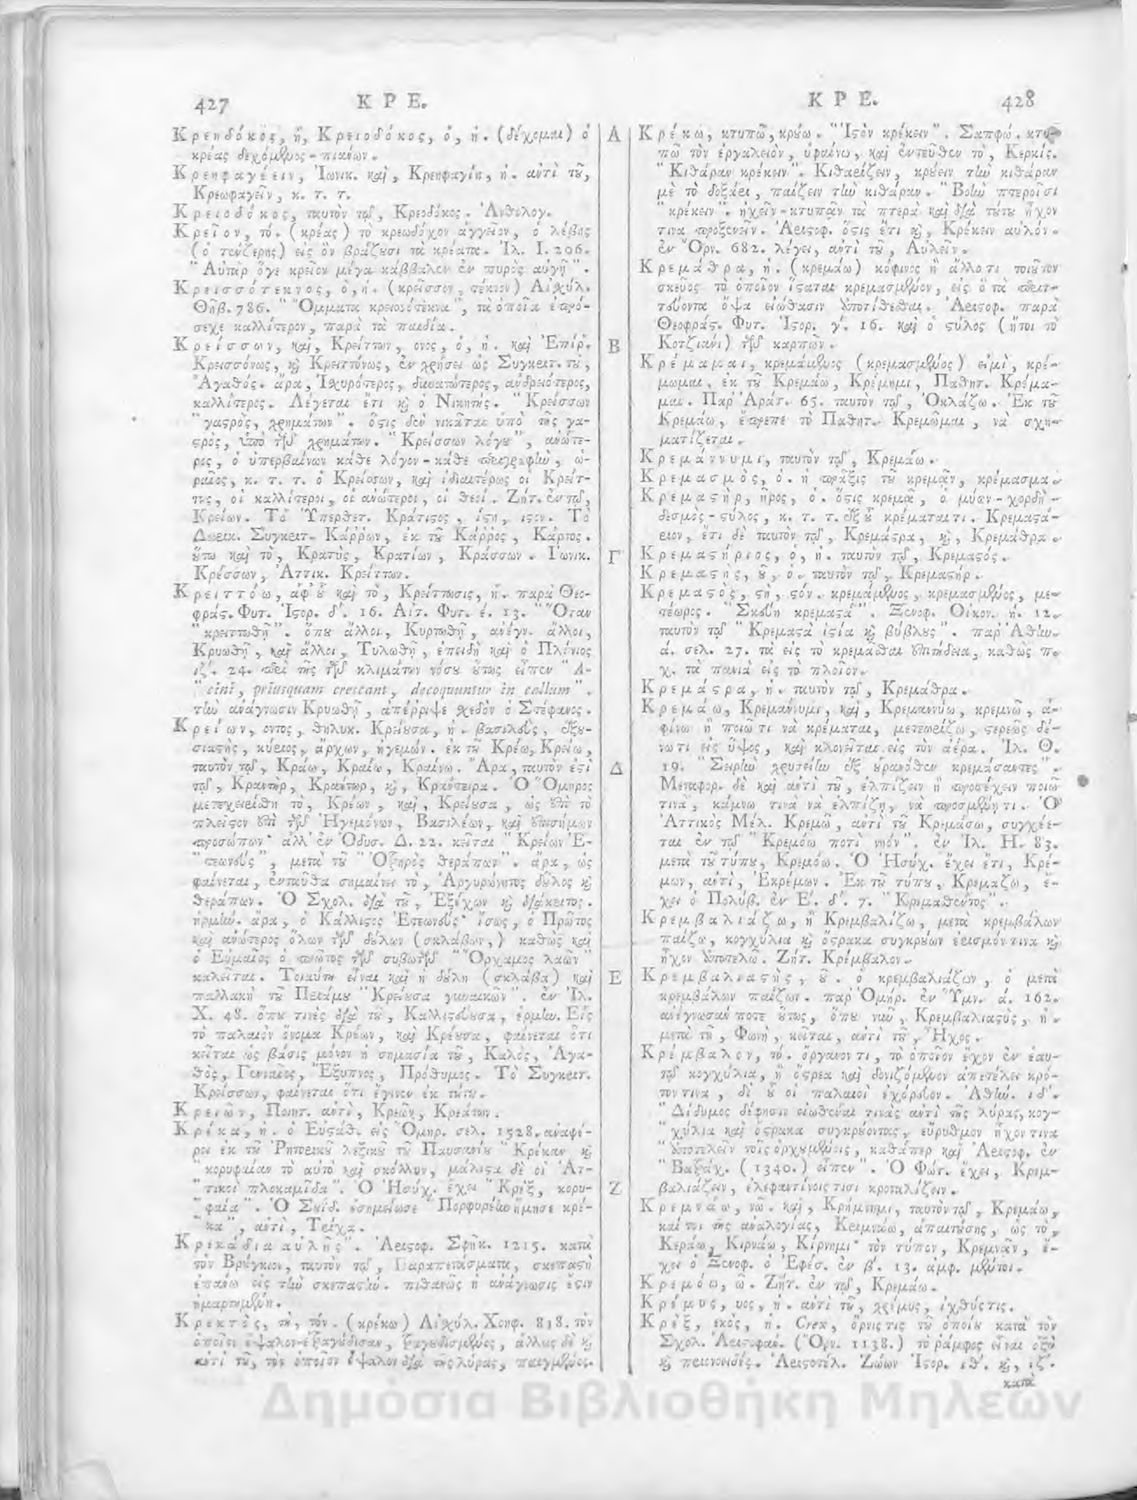 427 ΚΡΕ.
Κρεηδόκος, ἡ, Κρειοδόκος, ὁ, ἡ. (δέχομαι) ὁ
κρέας δεχόμενος - πιάνων.
Κρεηφαγέειν, Ἰωνικ. καὶ, Κρεηφαγίη, ἡ. ἀντὶ τοῦ,
Κρεωφαγεῖν, κ. τ. τ.
Κρειοδόκος, ταυτὸν τῷ, Κρεοδόκος. Ἀνθολογ.
Κρεῖον, τό. (κρέας) τὸ κρεωδόχον ἀγγεῖον, ὁ λέβης
(ὁ τενζερης) εἰς ὃν βράζουσι τὰ κρέατα. Ἰλ. Ι. 206.
"Αὐτὰρ ὅγε κρεῖον μέγα κάββαλεν ἐν πυρὸς αὐγῇ".
Κρεισσότεκνος, ὁ, ἡ. (κρείσσον, τέκνον) Αἰσχύλ.
Θηβ. 786. "Ὄμματα κρεισσότεκνα", τὰ ὁποῖα ἐπρό-
σεχε καλλίτερον, παρὰ τὰ παιδία.
Κρείσσων, καὶ, Κρείττων, ονος, ὁ, ἡ. καὶ Ἐπίρ.
Κρεισσόνως, καὶ Κρειττόνως, ἐν χρήσει ὡς Συγκριτ. τοῦ,
Ἀγαθός. ἄρα, Ἰσχυρότερος, δυνατώτερος, ἀνδρειότερος,
καλλίτερος. Λέγεται ἔτι καὶ ὁ Νικητής. "Κρείσσων
"γαστρὸς, χρημάτων". ὅστις δὲν νικᾶται ὑπὸ τῆς γα-
στρὸς, ὑπὸ τῶν χρημάτων. "Κρείσσων λόγου", ἀνώτε-
ρος, ὁ ὑπερβαίνων κάθε λόγον - κάθε περιγραφὴν, ὡ-
ραῖος, κ. τ. τ. ὁ Κρείσσων, καὶ ἰδιαιτέρως οἱ Κρείτ-
τες, οἱ καλλίτεροι, οἱ ἀνώτεροι, οἱ θεοί. Ζήτ. ἐν τῷ,
Κρείων. Τὸ Ὑπερθετ. Κράτιστος, ίστη, ιστον. Τὸ
Δωρικ. Συγκριτ. Κάῤῥων, ἐκ τοῦ Κάῤῥος, Κάρτος.
οὕτω καὶ τὸ, Κρατὺς, Κρατίων, Κράσσων. Ἰωνικ.
Κρέσσων, Ἀττικ. Κρείττων.
Κρειττόω, ἀφ' οὗ καὶ τὸ, Κρείττωσις, ἡ. παρὰ Θεο-
φράς. Φυτ. Ἱστορ. δ'. 16. Αἰτ. Φυτ. έ. 13. "Ὅταν
"κρειττωθῇ". ὅπου ἄλλοι, Κυρτωθῇ, ἀνέγν. ἄλλοι,
Κρυωθῇ, καὶ ἄλλοι, Τυλωθῇ, ἐπειδὴ καὶ ὁ Πλίνιος
ιζ'. 24. περὶ τῆς τῶν κλιμάτων νόσου οὕτως εἶπεν "A-
"cini, priusquam crescant, decoquuntur in callum".
τὴν ἀνάγνωσιν Κρυωθῇ, ἀπέῤῥιψε σχεδὸν ὁ Στέφανος.
Κρείων, οντος, θηλυκ. Κρείουσα, ἡ. βασιλεὺς, ἐξου-
σιαστὴς, κύριος, ἄρχων, ἡγεμών. ἐκ τοῦ Κρέω, Κρείω,
ταυτὸν τῷ, Κράω, Κραίω, Κραίνω. Ἄρα, ταυτὸν ἐστὶ
τῷ, Κραντὴρ, Κραντωρ, καὶ, Κράντειρα. Ὁ Ὅμηρος
μετεχειρίσθη τὸ, Κρείων, καὶ, Κρείουσα, ὡς ἐπὶ τὸ
πλεῖστον ἐπὶ τῶν Ἡγεμόνων, Βασιλέων, καὶ ἐπισήμων
προσώπων· ἀλλ' ἐν Ὀδυσ. Δ. 22. κεῖται "Κρείων Ἐ-
"τεωνεὺς", μετὰ τοῦ "Ὀτρηρὸς θεράπων". ἄρα, ὡς
φαίνεται, ἐνταῦθα σημαίνει τὸ, Ἀργυρώνητος δοῦλος καὶ
θεράπων. Ὁ Σχολ. διὰ τοῦ, Ἐξέχων καὶ διάκριτος.
ἡρμήν. ἄρα, ὁ Κάλλιστος Ἐτεωνεύς· ἴσως, ὁ Πρῶτος
καὶ ἀνώτερος ὅλων τῶν δούλων (σκλάβων,) καθὼς καὶ
ὁ Εὔμαιος ὁ πρῶτος τῶν συβωτῶν "Ὄρχαμος λαῶν"
καλεῖται. Τοιαύτη εἶναι καὶ ἡ δούλη (σκλάβα) καὶ
παλλακὴ τοῦ Πριάμου "Κρείουσα γυναικῶν". ἐν Ἰλ.
Χ. 48. ὅπου τινὲς διὰ τοῦ, Καλλιστεύουσα, ἑρμήν. Εἰς
τὸ παλαιὸν ὄνομα Κρέων, καὶ Κρέουσα, φαίνεται ὅτι
κεῖται ὡς βάσις μόνον ἡ σημασία τοῦ, Καλὸς, Ἀγα-
θὸς, Γενναῖος, Ἔξυπνος, Πρόθυμος. Τὸ Συγκριτ.
Κρείσσων, φαίνεται ὅτι ἔγινεν ἐκ τούτου.
Κρειῶν, Ποιητ. ἀντὶ, Κρεῶν, Κρεάτων.
Κρέκα, ἡ. ὁ Εὐστάθ. εἰς Ὅμηρ. σελ. 1528. ἀναφέ-
ρει ἐκ τοῦ Ῥητορικοῦ λεξικοῦ τοῦ Παυσανίου "Κρέκαν καὶ
"κορυφαίαν τὸ αὐτὸ καὶ σκόλλυν, μάλιστα δὲ οἱ Ἀτ-
"τικοὶ πλοκαμῖδα". Ὁ Ἡσύχ. ἔχει "Κρὲξ, κορυ-
"φαία". Ὁ Σουΐδ. ἐσημείωσε "Πορφυρέην ἥμησε κρέ-
"κα", ἀντὶ, Τρίχα.
Κρεκάδια αὐλῆς". Ἀριστοφ. Σφήκ. 1215. κατὰ
τὸν Βρύγκιον, ταυτὸν τῷ, Παραπετάσματα, σκεπαστὴ
ἐπάνω εἰς τὴν σκεπαστήν. πιθανῶς ἡ ἀνάγνωσις ἔστιν
ἡμαρτημένη.
Κρεκτὸς, τὴ, τόν. (κρέκω) Αἰσχύλ. Χοηφ. 818. τὸν
ὁποῖον ἔψαλον-ἐτραγῴδισαν, τραγῳδισμένος, ἄλλως δὲ καὶ
ἀντὶ τοῦ, τὸν ὁποῖον ἔψαλον διὰ τῆς λύρας, παιγμένος.
Α
Β
Γ
Δ
Ε
Ζ
ΚΡΕ. 428
Κρέκω, κτυπῶ, κρούω. "Ἱστὸν κρέκειν". Σαπφώ. κτυ-
πῶ τὸν ἐργαλειὸν, ὑφαίνω, καὶ ἐντεῦθεν τὸ, Κερκίς.
"Κιθάραν κρέκειν". Κιθαρίζειν, κρούειν τὴν κιθάραν
μὲ τὸ δοξάρι, παίζειν τὴν κιθάραν. "Βοὴν πτεροῖσι
"κρέκειν". ἠχεῖν - κτυπᾶν τὰ πτερὰ καὶ διὰ τούτου ἦχον
τινα προξενεῖν. Ἀριστοφ. ὅστις ἔτι καὶ, Κρέκειν αὐλὸν.
ἐν Ὄρν. 682. λέγει, ἀντὶ τοῦ, Αὐλεῖν.
Κρεμάθρα, ἡ. (κρεμάω) κόφινος ἢ ἄλλο τι τοιοῦτον
σκεῦος τὸ ὁποῖον ἵσταται κρεμασμένον, εἰς ὃ τὰ περιτ-
τεύοντα ὄψα εἰώθασιν ἀποτίθεσθαι. Ἀριστοφ. παρὰ
Θεοφράς. Φυτ. Ἱστορ. γ'. 16. καὶ ὁ στύλος (ἤτοι τὸ
Κοτζιάνι) τῶν καρπῶν.
Κρέμαμαι, κρεμάμενος (κρεμασμένος) εἰμὶ, κρέ-
μωμαι, ἐκ τοῦ Κρεμάω, Κρέμημι, Παθητ. Κρέμα-
μαι. Παρ' Ἀράτ. 65. ταυτὸν τῷ, Ὀκλάζω. Ἐκ τοῦ
Κρεμάω, ἔπρεπε τὸ Παθητ. Κρεμῶμαι, νὰ σχη-
ματίζεται.
Κρεμάννυμι, ταυτὸν τῷ, Κρεμάω.
Κρεμασμὸς, ὁ. ἡ πρᾶξις τοῦ κρεμᾶν, κρέμασμα.
Κρεμαστὴρ, ῆρος, ὁ. ὅστις κρεμᾷ, ὁ μύων - χορδὴ -
δεσμὸς - στύλος, κ. τ. τ. ἐξ οὗ κρέματαί τι. Κρεμαστά-
ριον, ἔτι δὲ ταυτὸν τῷ, Κρεμάστρα, καὶ, Κρεμάθρα.
Κρεμαστήριος, ὁ, ἡ. ταυτὸν τῷ, Κρεμαστός.
Κρεμαστὴς, οῦ, ὁ. ταυτὸν τῷ, Κρεμαστήρ.
Κρεμαστὸς, στὴ, στόν. κρεμάμενος, κρεμασμένος, με-
τέωρος. "Σκεύη κρεμαστά". Ξενοφ. Οἰκον. ή. 12.
ταυτὸν τῷ "Κρεμαστὰ ἱστία καὶ βύβλους". παρ' Ἀθην.
ά. σελ. 27. τὰ εἰς τὸ κρεμᾶσθαι ἐπιτήδεια, καθὼς π.
χ. τὰ πανιὰ εἰς τὸ πλοῖον.
Κρεμάστρα, ἡ. ταυτὸν τῷ, Κρεμάθρα.
Κρεμάω, Κρεμάννυμι, καὶ, Κρεμαννύω, κρεμνῶ, ἀ-
φίνω ἢ ποιῶ τι νὰ κρέμαται, μετεωρίζω, στερεῶς δέ-
νω τι εἰς ὕψος, καὶ κλονεῖται εἰς τὸν ἀέρα. Ἰλ. Θ.
19. "Σειρὴν χρυσείην ἐξ οὐρανόθεν κρεμάσαντες".
Μεταφορ. δὲ καὶ ἀντὶ τοῦ, ἐλπίζειν ἢ προσέχειν ποιῶ
τινὰ, κάμνω τινὰ νὰ ἐλπίζῃ, νὰ προσμένῃ τι. Ὁ
Ἀττικὸς Μέλ. Κρεμῶ, ἀντὶ τοῦ Κρεμάσω, συγχέε-
ται ἐν τῷ "Κρεμόω ποτὶ νηόν". ἐν Ἰλ. Η. 83.
μετὰ τοῦ τύπου, Κρεμόω. Ὁ Ἡσύχ. ἔχει ἔτι, Κρέ-
μων, ἀντὶ, Ἐκρέμων. Ἐκ τοῦ τύπου, Κρεμάζω, ἔ-
χει ὁ Πολύβ. ἐν Ε. δ'. 7. "Κρεμασθέντος".
Κρεμβαλιάζω, ἢ Κρεμβαλίζω, μετὰ κρεμβάλων
παίζω, κογχύλια καὶ ὄστρακα συγκρούων ῥυθμόν τινα καὶ
ἦχον ἀποτελῶ. Ζήτ. Κρέμβαλον.
Κρεμβαλιαστὴς, οῦ. ὁ κρεμβαλιάζων, ὁ μετὰ
κρεμβάλων παίζων. παρ' Ὁμήρ. ἐν Ὕμν. ά. 162.
ἀνέγνωσάν ποτε οὕτως, ὅπου νῦν, Κρεμβαλιαστὺς, ἡ.
μετὰ τοῦ, Φωνὴ, κεῖται, ἀντὶ τοῦ, Ἦχος.
Κρέμβαλον, τό. ὄργανόν τι, τὸ ὁποῖον ἔχον ἐν ἑαυ-
τῷ κογχύλια, ἢ ὄστρεα καὶ δονιζόμενον ἀπετέλει κρό-
τον τινα, δι' οὗ οἱ παλαιοὶ ἐχόρευον. Ἀθήν. ιδ'.
"Δίδυμος δέ φησιν εἰωθέναι τινὰς ἀντὶ τῆς λύρας, κογ-
"χύλια καὶ ὄστρακα συγκρούοντας, εὔρυθμον ἦχόν τινα
"ἀποτελεῖν τοῖς ὀρχουμένοις, καθάπερ καὶ Ἀριστοφ. ἐν
"Βατράχ. (1340.) εἶπεν". Ὁ Φώτ. ἔχει, Κρεμ-
βαλιάζειν, ἐλεφαντίνοις τισι κροταλίζειν.
Κρεμνάω, νῶ. καὶ, Κρήμνημι, ταυτὸν τῷ, Κρεμάω,
καί τοι τῆς ἀναλογίας, Κριμνάω, ἀπαιτήσης, ὡς τὸ,
Κεράω, Κιρνάω, Κίρνημι· τὸν τύπον, Κρεμνᾶν, ἔ-
χει ὁ Ξενοφ. ὁ Ἐφέσ. ἐν β'. 13. ἀμφ. μέντοι.
Κρεμόω, ῶ. Ζήτ. ἐν τῷ, Κρεμάω.
Κρέμυς, υος, ἡ. ἀντὶ τοῦ, χρέμυς, ἰχθύς τις.
Κρὲξ, εκὸς, ἡ. Crex, ὄρνις τις τοῦ ὁποίου κατὰ τὸν
Σχολ. Ἀριστοφαν. (Ὀρν. 1138.) τὸ ῥάμφος εἶναι ὀξὺ
καὶ πριονοειδές. Ἀριστοτέλ. Ζώων Ἱστορ. ιθ'. καὶ, ιζ'.
κατὰ
Δημόσια Βιβλιοθήκη Μηλεών